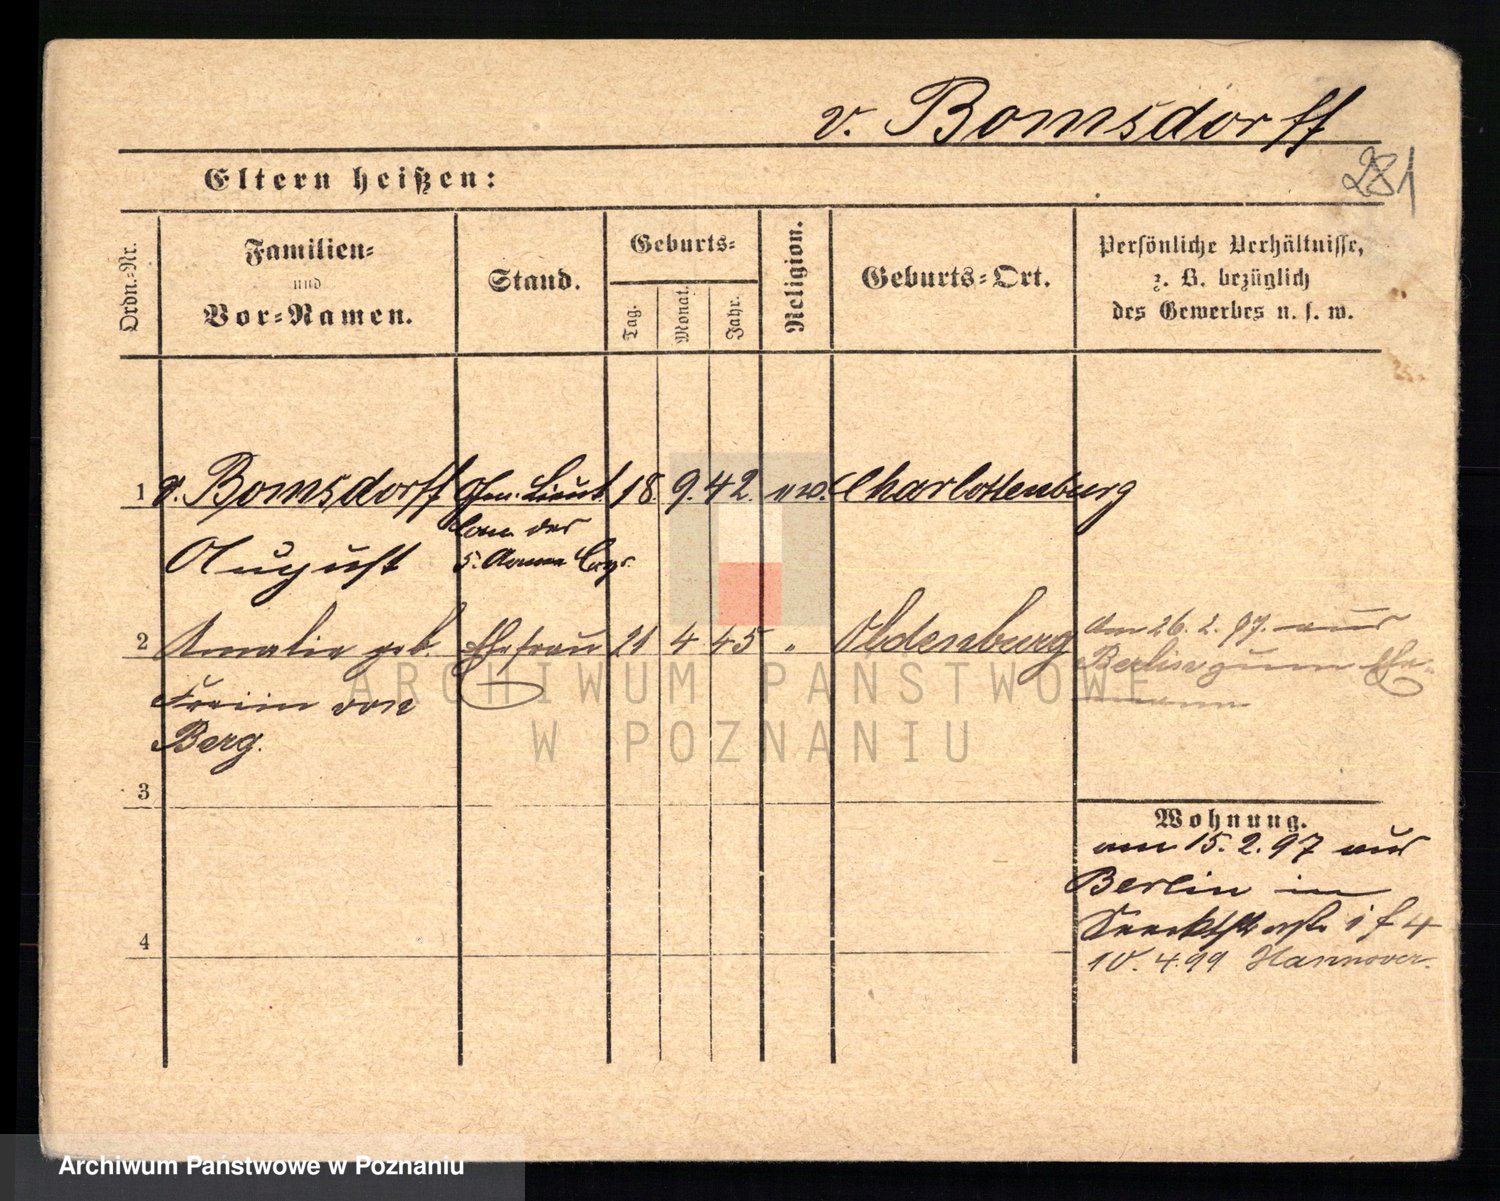 v. Bomsdorff
281
Eltern heißen:
Ordn.-Nr.
Familien-
und
Vor-Namen.
Stand.
Geburts-
Tag.
Monat.
Jahr.
Religion.
Geburts-Ort.
Persönliche Verhältnisse,
z. B. bezüglich
des Gewerbes u. s. w.
1 v. Bomsdorff Gen. Lieut 18. 9. 42. ev. Charlottenburg
August
der
5. Armee Corps
2 Amalie geb. Ehefrau 21 4 45 " Oldenburg
Freiin von
Berg.
am 26. 2. 97. aus
Berlin zum Ehe-
mann
3
Wohnung.
am 15. 2. 97 aus
Berlin in
4
10. 4. 99 Hannover.
ARCHIWUM PAŃSTWOWE
W POZNANIU
Archiwum Państwowe w Poznaniu